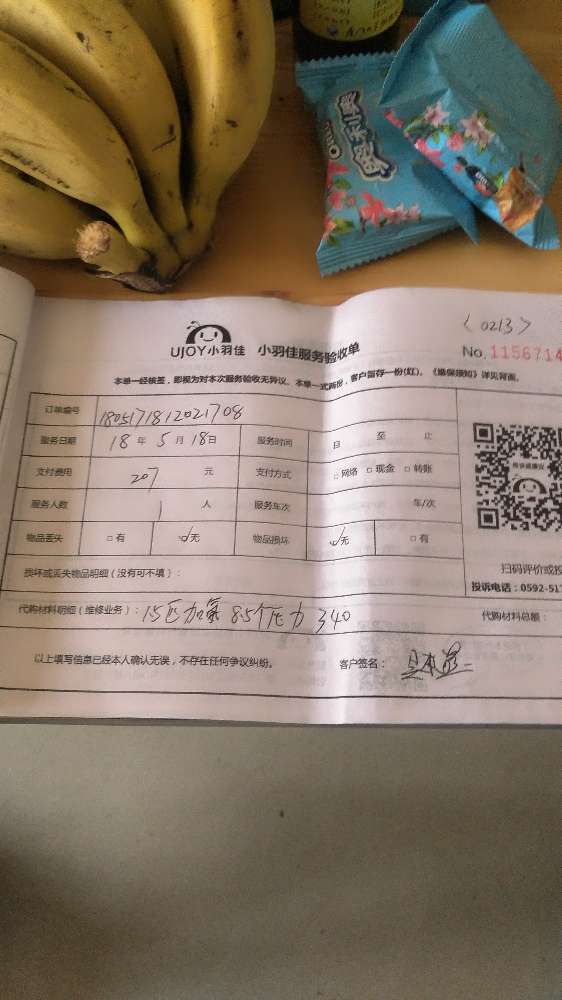 <0213>
UJOY小羽佳 小羽佳服务验收单
No. 1156714
本单一经核签，即视为对本次服务验收无异议。本单一式两份，客户留存一份(红)。《维保须知》详见背面。
订单编号 1805171812021708
服务日期 18年 5月 18日 服务时间 自 至 止
支付费用 207 元 支付方式 □网络 □现金 □转账
服务人数 1 人 服务年次 年/次
物品丢失 □有 ☑无 物品损坏 ☑无 □有
损坏或丢失物品明细（没有可不填）：
扫码评价或投
投诉电话：0592-517
代购材料明细（维修业务）：1.5匹加氟 8.5个压力 340
代购材料总额：
以上填写信息已经本人确认无误，不存在任何争议纠纷。 客户签名：